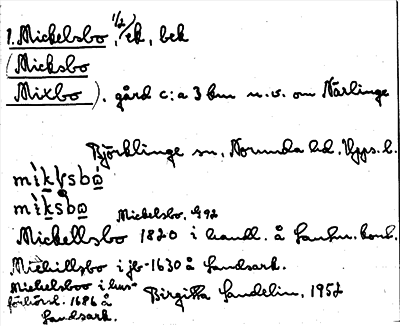 1. Mickelsbo, 1/2 ek, bek
(Micksbo
Mixbo). gård c:a 3 km n.v. om Närlinge
Björklinge sn, Norunda hd, Upps. l.
mikḷsbo
miksbo
Mickelsbo, G 92
Mickellsbo 1820 i handl. å Lantm. kont.
Michillsbo i jb 1630 å Landsark.
Michelsbo i hus-
förhörsl. 1686 å
Landsark.
Birgitta Sandelin, 1952